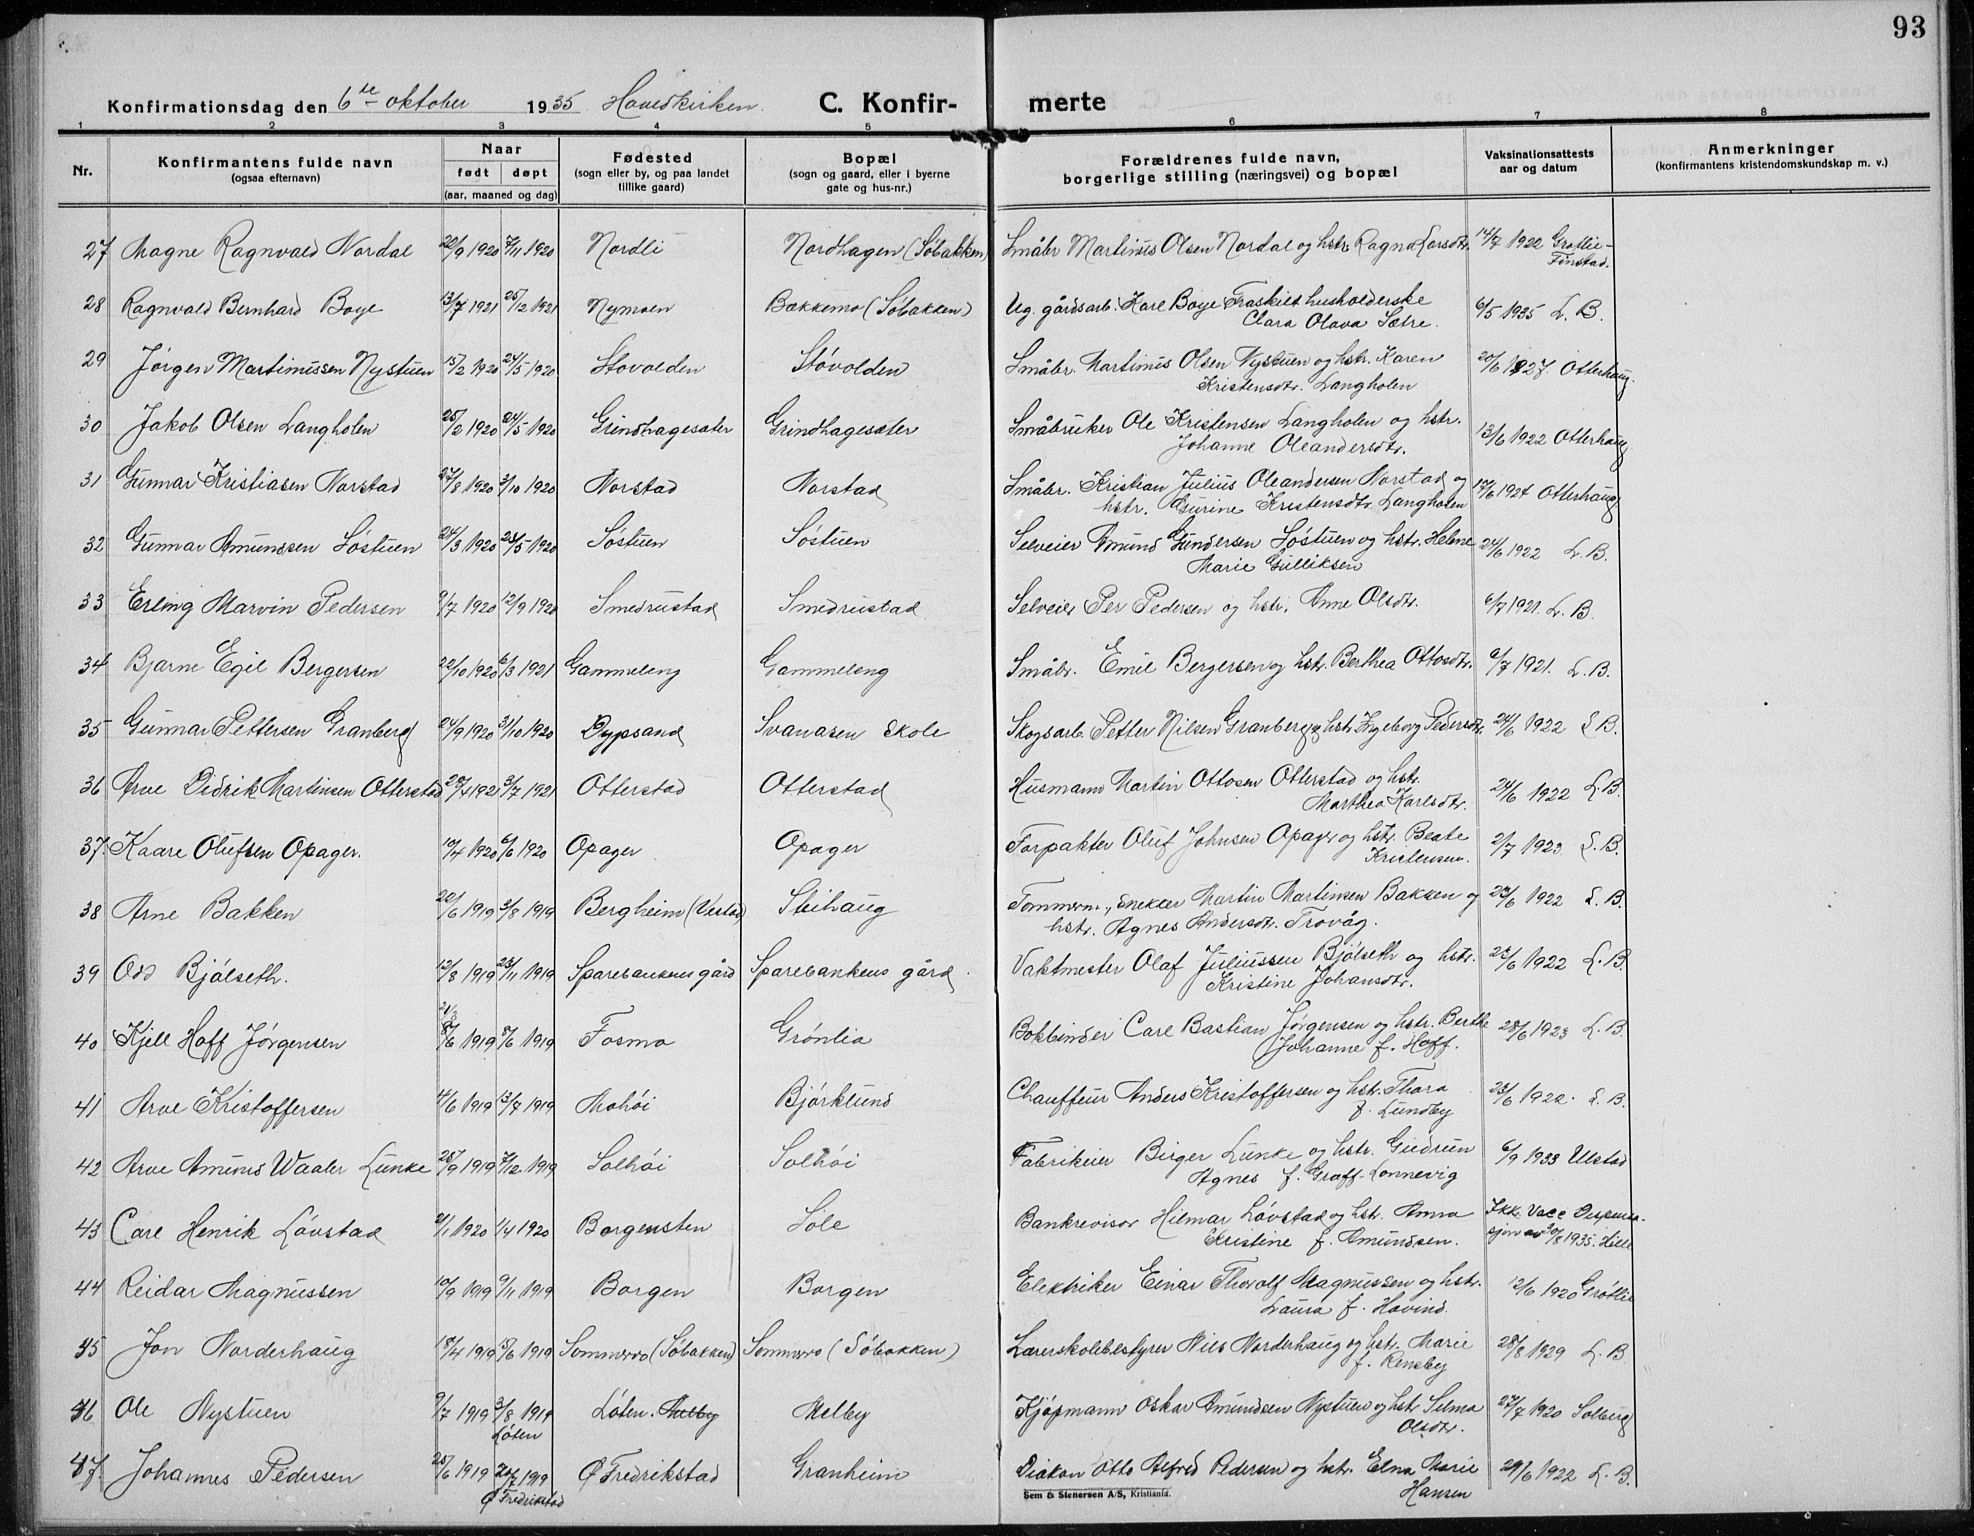 93
Konfirmationsdag den 6te oktober 1935 Hovedkirken. C. Konfir- merte
1 2 3 4 5 6 7 8
Nr. Konfirmantens fulde navn (ogsaa efternavn) Naar født døpt (aar, maaned og dag) Fødested (sogn eller by, og paa landet tillike gaard) Bopæl (sogn og gaard, eller i byerne gate og hus-nr.) Forældrenes fulde navn, borgerlige stilling (næringsvei) og bopæl Vaksinationsattests aar og datum Anmerkninger (konfirmantens kristendomskundskap m. v.)
27 Magne Ragnvald Nordal 20/9 1920 7/11 1920 Nordli Nordhagen (Søbakken) Småbr Martinus Olsen Nordal og hstr. Ragna Larsdtr. 14/7 1922 Grøtlie-
Finstad.
28 Ragnvald Bernhard Boye 13/7 1921 25/12 1921 Nymoen Bakkemo (Søbakken) Ug. gårdsarb. Karl Boye Fraskilt husholderske 6/5 1935 L. B.
Clara Olava Sætre.
29 Jørgen Martinussen Nystuen 15/2 1920 24/5 1920 Støvolden Støvolden Småbr. Martinus Olsen Nystuen og hstr. Karen 20/6 1927 Otterhaug.
Kristensdtr. Langholen
30 Jakob Olsen Langholen 25/2 1920 24/5 1920 Grindhagesæter Grindhagesæter Småbruker Ole Kristensen Langholen og hstr. 13/6 1922 Otterhaug
Johanne Oleandersdtr.
31 Gunnar Kristiasen Norstad 27/8 1920 3/10 1920 Norstad Norstad Småbr. Kristian Julius Oleandersen Norstad og 17/6 1924 Otterhaug
hstr. Gurine Kristensdtr. Langholen
32 Gunnar Amundsen Søstuen 24/3 1920 23/5 1920 Søstuen Søstuen Selveier Amund Gundersen Søstuen og hstr. Helene 24/6 1922 L. B.
Marie Gulliksen
33 Erling Marvin Pedersen 9/7 1920 12/9 1920 Smedrustad Smedrustad Selveier Per Pedersen og hstr. Anne Olsdtr. 6/7 1921. L. B.
34 Bjarne Egil Bergersen 22/10 1920 6/3 1921 Gammeleng Gammeleng Småbr. Emil Bergersen og hstr. Berthea Ottosdtr. 6/7 1921. L. B.
35 Gunnar Pettersen Granberg 24/9 1920 31/10 1920 Dypsand Svanåsen Skole Skogsarb. Petter Nilsen Granberg og hstr Ingeborg Pedersdtr. 24/6 1922 L B.
36 Arve Didrik Martinsen Otterstad 20/4 1921 3/7 1921 Otterstad Otterstad Husmann Martin Ottosen Otterstad og hstr. 24/6 1922 L. B.
Marthea Karlsdtr.
37. Kaare Olufsen Opager. 10/4 1920 6/6 1920 Opager Opager Forpakter Oluf Johnsen Opager og hstr. Beate 2/7 1923 L. B.
Kristensen.
38 Arne Bakken 22/6 1919 3/8 1919 Bergheim (Vestad) Stihaug Tømmerm., Snekker Martin Martinsen Bakken og 23/6 1922 L. B.
hstr. Agnes Andersdtr. Trovåg.
39 Odd Bjølseth. 12/8 1919 23/11 1919 Sparebankens gård Sparebankens gård. Vaktmester Olaf Juliussen Bjølseth og hstr. 23/6 1922 L. B.
Kristine Johansdtr.
40 Kjell Hoff Jørgensen 21/3 8/6 1919 8/6 1919 Fosmo Grønlia Bokbinder Carl Bastian Jørgensen og hstr. Berthe 28/6 1923 L. B.
Johanne f. Hoff.
41 Arve Kristoffersen 4/6 1919 13/7 1919 Mohøi Bjørklund Chauffeur Anders Kristoffersen og hstr. Thora 23/6 1922. L. B.
f. Lundby
42 Arve Amunds Waaler Lunke 25/9 1919 7/12 1919 Solhøi Solhøi Fabrikeier Birger Lunke og hstr. Gudrun 6/9 1933 Ulstad
Agnes f. Graff-Lonnevig
43 Carl Henrik Løvstad 2/1 1920 1/4 1920 Borgensten Sole Bankrevisor Hilmar Løvstad og hstr. Anna Ikke Vacc Dispensa-
Kristine f. Amundsen. sjon av 30/8 1935. Hille
44 Reidar Magnussen 10/9 1919 9/11 1919 Borgen Borgen Elektriker Einar Thorolf Magnussen og hstr. 12/6 1920 Grøtlie
Laura f. Hovind.
45 Jon Norderhaug 18/4 1919 15/6 1919 Sommero (Søbakken) Sommero (Søbakken) Lærerskolebestyrer Nils Norderhaug og hstr. Marie 28/8 1929 L. B
f. Rensby
46 Ole Nystuen 9/7 1919 3/8 1919 Løten. Melby Melby Kjøpmann Oskar Amundsen Nystuen og hstr Selma 27/7 1920 Solberg
Løten Olsdtr.
47. Johannes Pedersen 25/6 1919 20/7 1919 Ø Fredrikstad Granheim Diakon Otto Alfred Pedersen og hstr. Elna Marie 29/6 1922 L. B.
Ø Fredrikstad Hansen
Sem & Stenersen A/S, Kristiania.